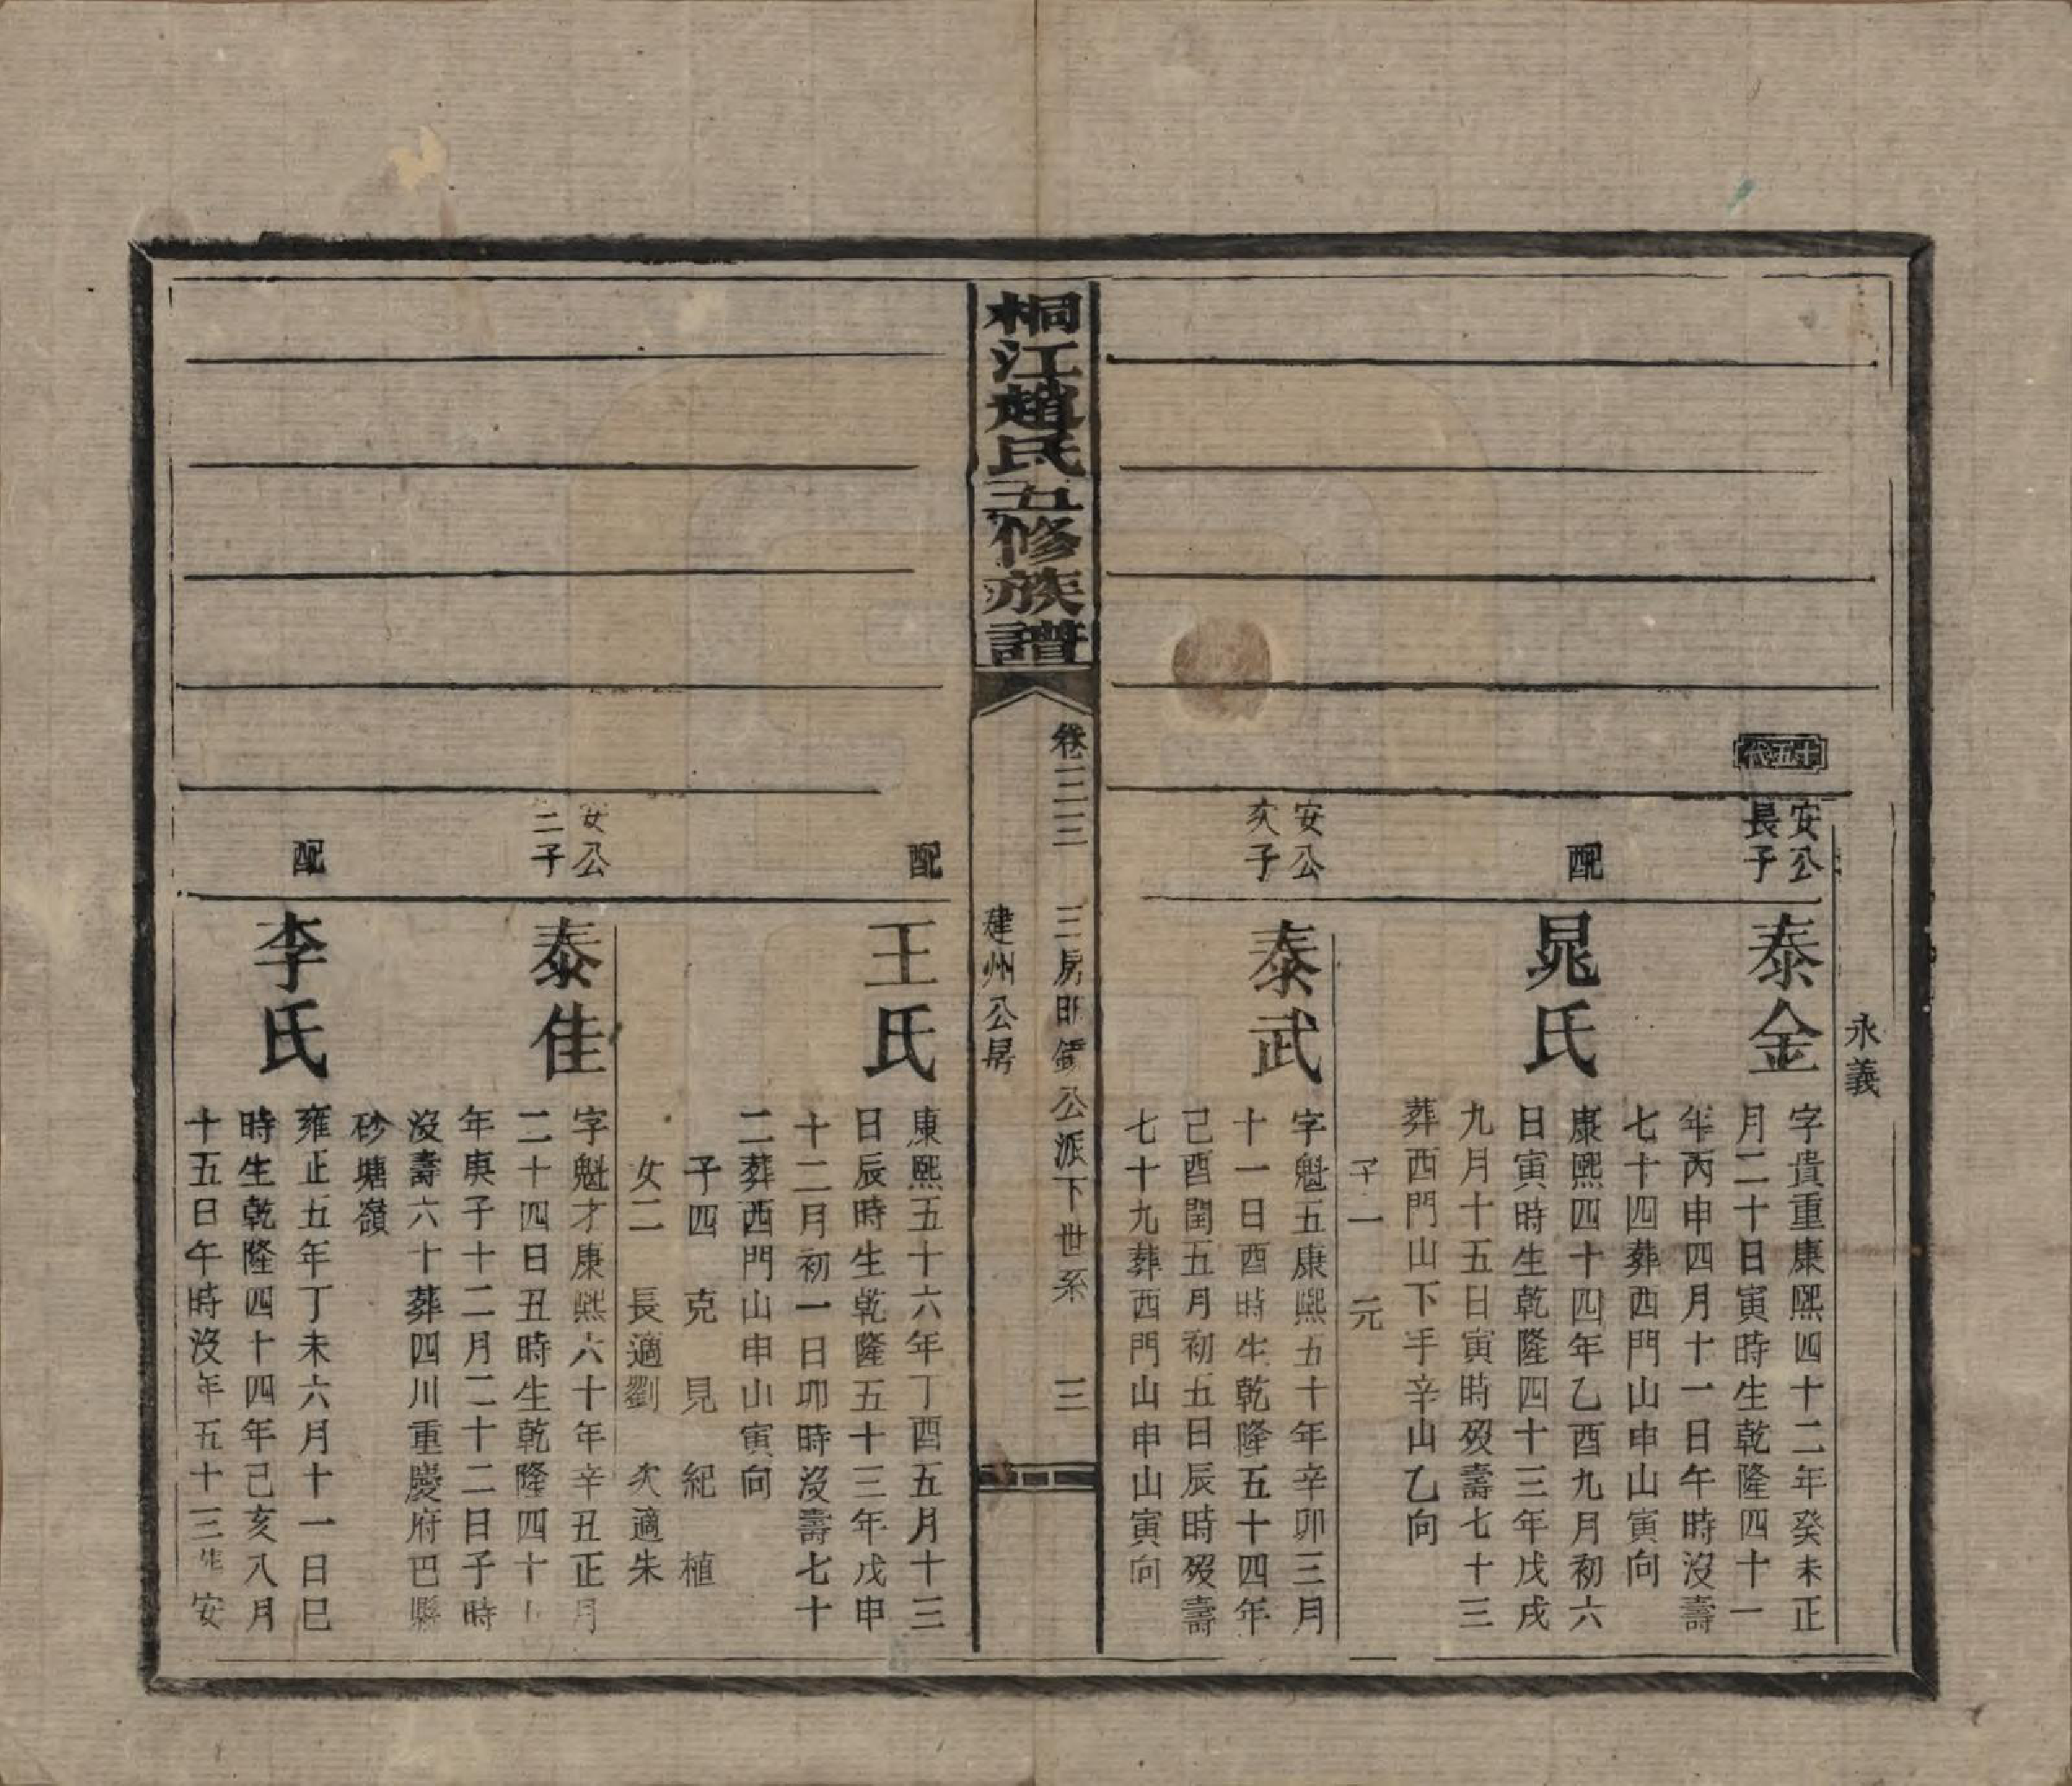 永義
十五代
安公
長子
泰金
字貴重康熙四十二年癸未正
月二十日寅時生乾隆四十一
年丙申四月十一日午時沒壽
七十四葬西門山申山寅向
配
晁氏
康熙四十四年乙酉九月初六
日寅時生乾隆四十三年戊戌
九月十五日寅時歿壽七十三
葬西門山下手辛山乙向
子一 元
安公
次子
泰武
字魁五康熙五十年辛卯三月
十一日酉時生乾隆五十四年
己酉閏五月初五日辰時歿壽
七十九葬西門山申山寅向
桐江趙氏五修族譜
卷三三 三房明 公派下世系 三
建州公房
配
王氏
康熙五十六年丁酉五月十三
日辰時生乾隆五十三年戊申
十二月初一日卯時沒壽七十
二葬西門山申山寅向
子四 克 見 紀 植
女二 長適劉 次適朱
安公
二子
泰佳
字魁才康熙六十年辛丑正月
二十四日丑時生乾隆四十
年庚子十二月二十二日子時
沒壽六十葬四川重慶府巴縣
砂塘嶺
配
李氏
雍正五年丁未六月十一日巳
時生乾隆四十四年己亥八月
十五日午時沒年五十三 安